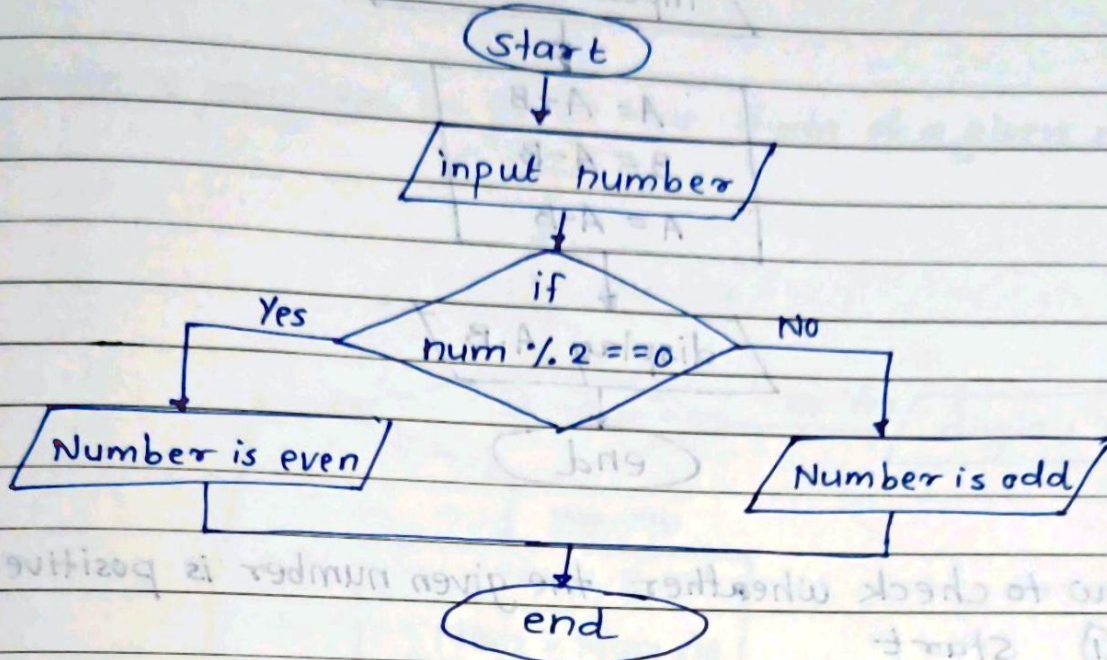 start
input number
if
Yes
No
num % 2 = = 0
Number is even
Number is odd
end